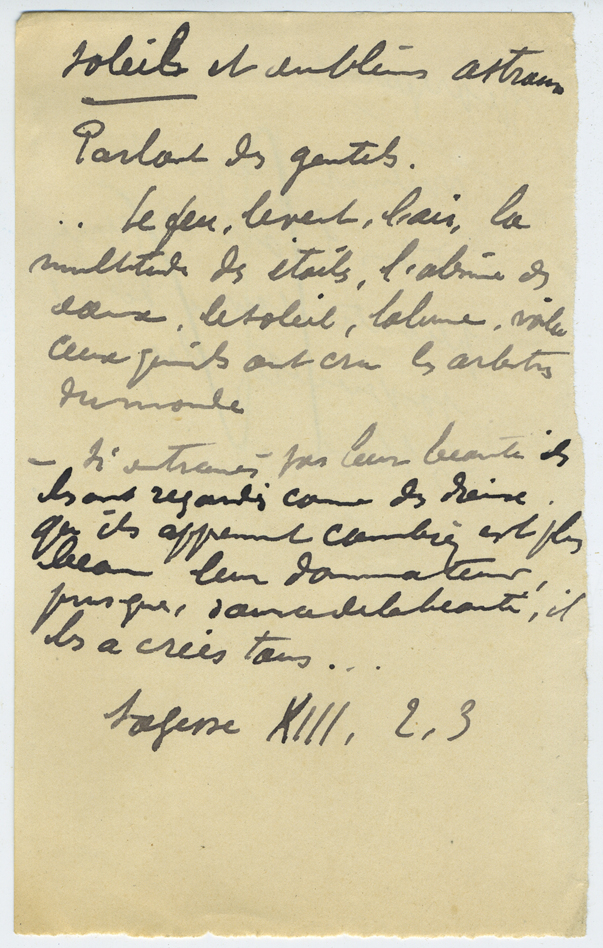 soleils et emblèms astraux
Parlant des gentils.
.. Le feu, le vent, l'air, la
multitude des étoils, l'abîme des
eaux, le soleil, la lune, voila
ceux qu'ils ont cru les arbitres
du monde
— Si entrainés par leur beauté ils
les ont regardés comme des dieux.
qu'ils apprennent combien est plus
beau leur dominateur,
puisque, source de la beauté, il
les a créés tous...
Sagesse XIII, 2, 3